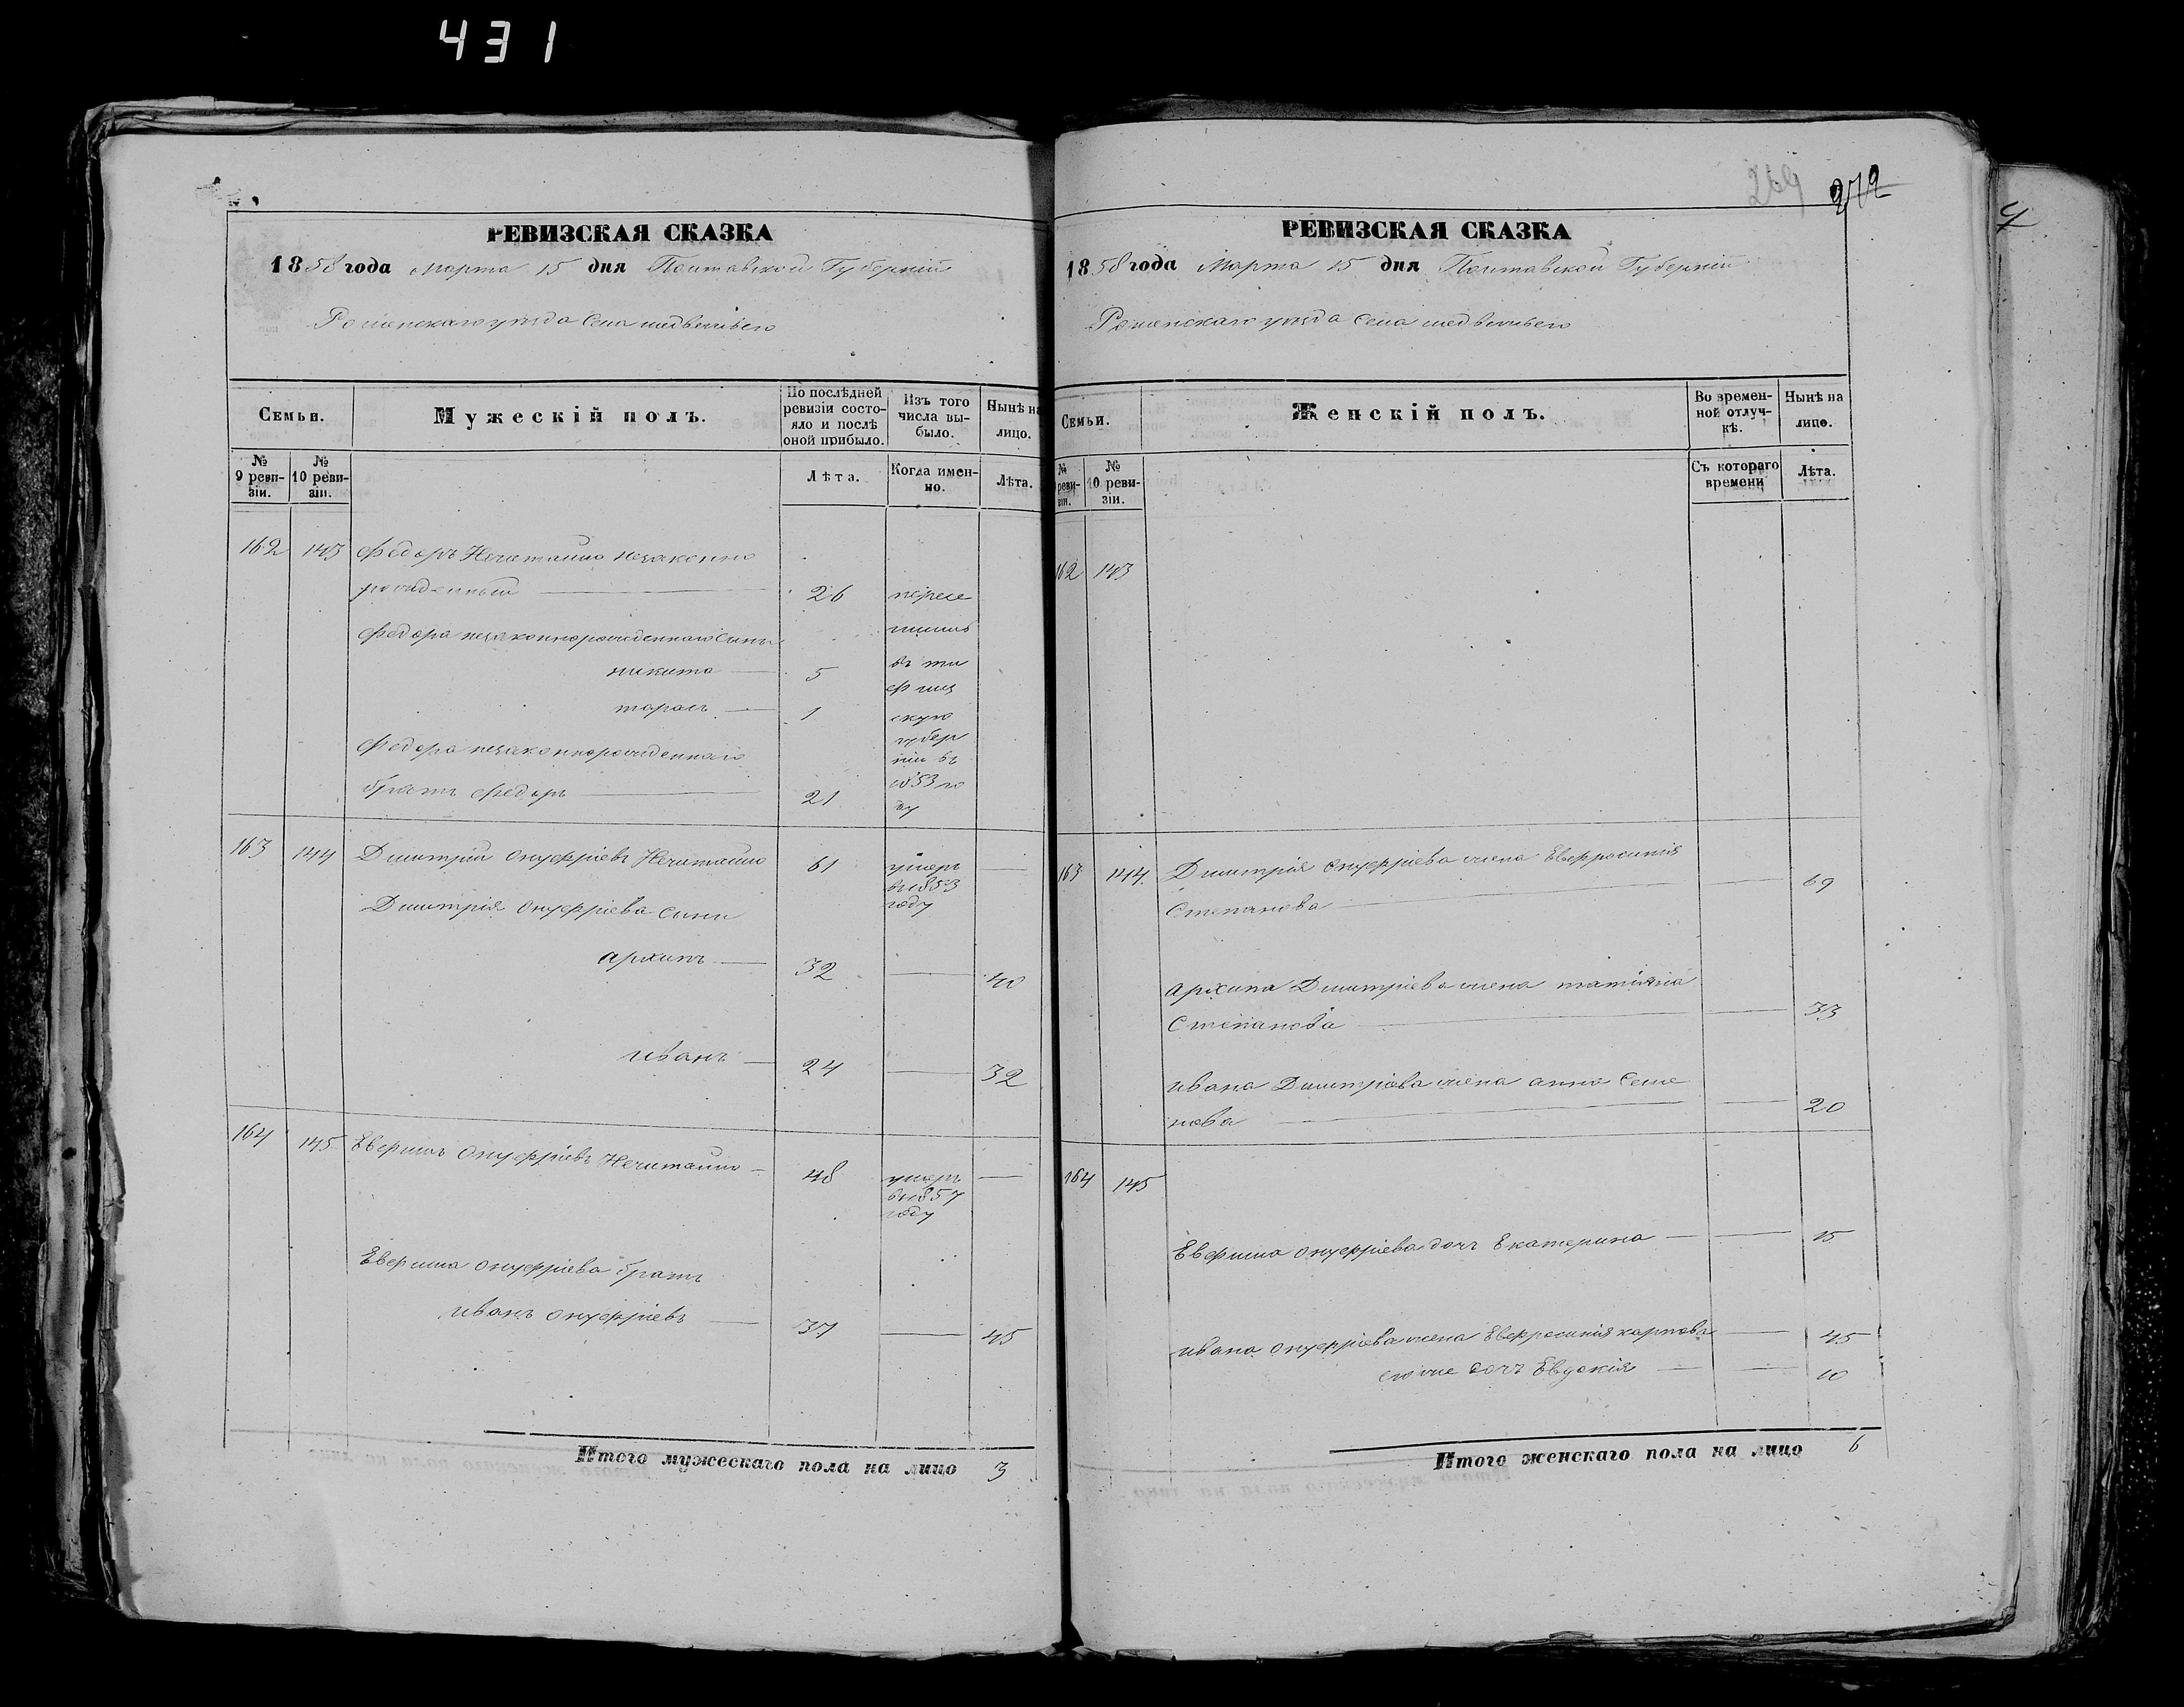 431
269 272
РЕВИЗСКАЯ СКАЗКА
1858 года Марта 15 дня Полтавской Губерніи
Роменскаго уезда Села медвежьего
Семьи.
Мужескій полъ.
По послѣдней ревизіи состояло и послѣ оной прибыло.
Изъ того числа выбыло.
Нынѣ на лицо.
№ 9 ревизіи.
№ 10 ревизіи.
Лѣта.
Когда именно.
Лѣта.
162 143 Федоръ Нечитайло незаконно
рожденный 26 пересе
Федора незаконнорожденнаго сыны
лились
никита 5 въ та
врич
тарас 1 скую
губер
Федора незаконнорожденнаго
нію въ
братъ Федоръ 21 1853 го
ду
163 144 Дмитрій Онуфріевъ Нечитайло 61 умеръ
в 1853
году
Дмитрія Онуфріева сыны
архипъ 32 40
иванъ 24 32
164 145 Онуфріевъ Нечитайло 48 умеръ
в 1857
году
Онуфріева братъ
иванъ Онуфріевъ 37 45
Итого мужескаго пола на лицо 3
РЕВИЗСКАЯ СКАЗКА
1858 года Марта 15 дня Полтавской Губерніи
Роменскаго уезда Села медвежьего
Семьи.
Женскій полъ.
Во временной отлучкѣ.
Нынѣ на лицо.
№ ревизіи.
№ 10 ревизіи.
Съ котораго времени
Лѣта.
162 143
163 144. Дмитрія Онуфріева жена Евфросинія
Степанова 69
архипа Дмитріева жена татіяна
Степанова 33
ивана Дмитріева жена анна Семе
нова 20
164 145
Онуфріева дочь Екатерина 15
ивана Онуфріева жена Евфросинія карпова 45
его же дочь Евдокія 10
Итого женскаго пола на лицо 6